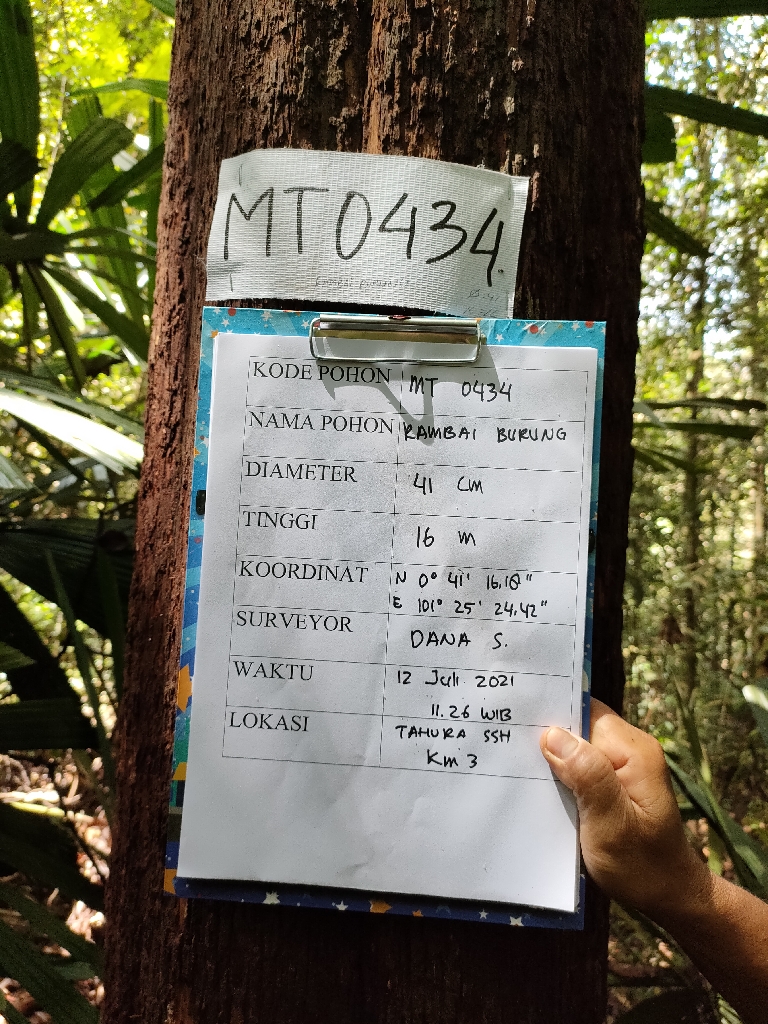 MT0434
KODE POHON MT 0434
NAMA POHON RAMBAI BURUNG
DIAMETER 41 CM
TINGGI 16 m
KOORDINAT N 0° 41' 16.18"
E 101° 25' 24.42"
SURVEYOR DANA S.
WAKTU 12 Juli 2021
11.26 WIB
LOKASI TAHURA SSH
Km 3